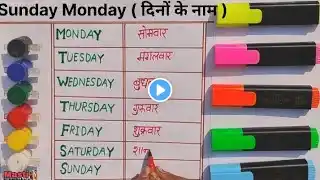 Sunday Monday ( दिनों के नाम )
MONDAY सोमवार
TUESDAY मंगलवार
WEDNESDAY
THURSDAY गुरूवार
FRIDAY शुक्रवार
SATURDAY
SUNDAY